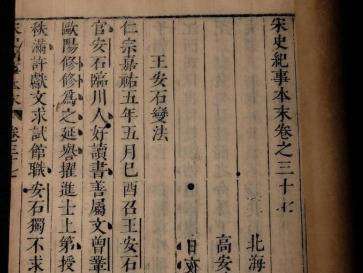 宋史紀事本末卷之三十七
北海
高安
王安石變法
仁宗嘉祐五年五月己酉召王安石
官安石臨川人好讀書善屬文曾鞏
歐陽修修為之延譽擢進士上第授
秩滿許獻文求試館職安石獨不求